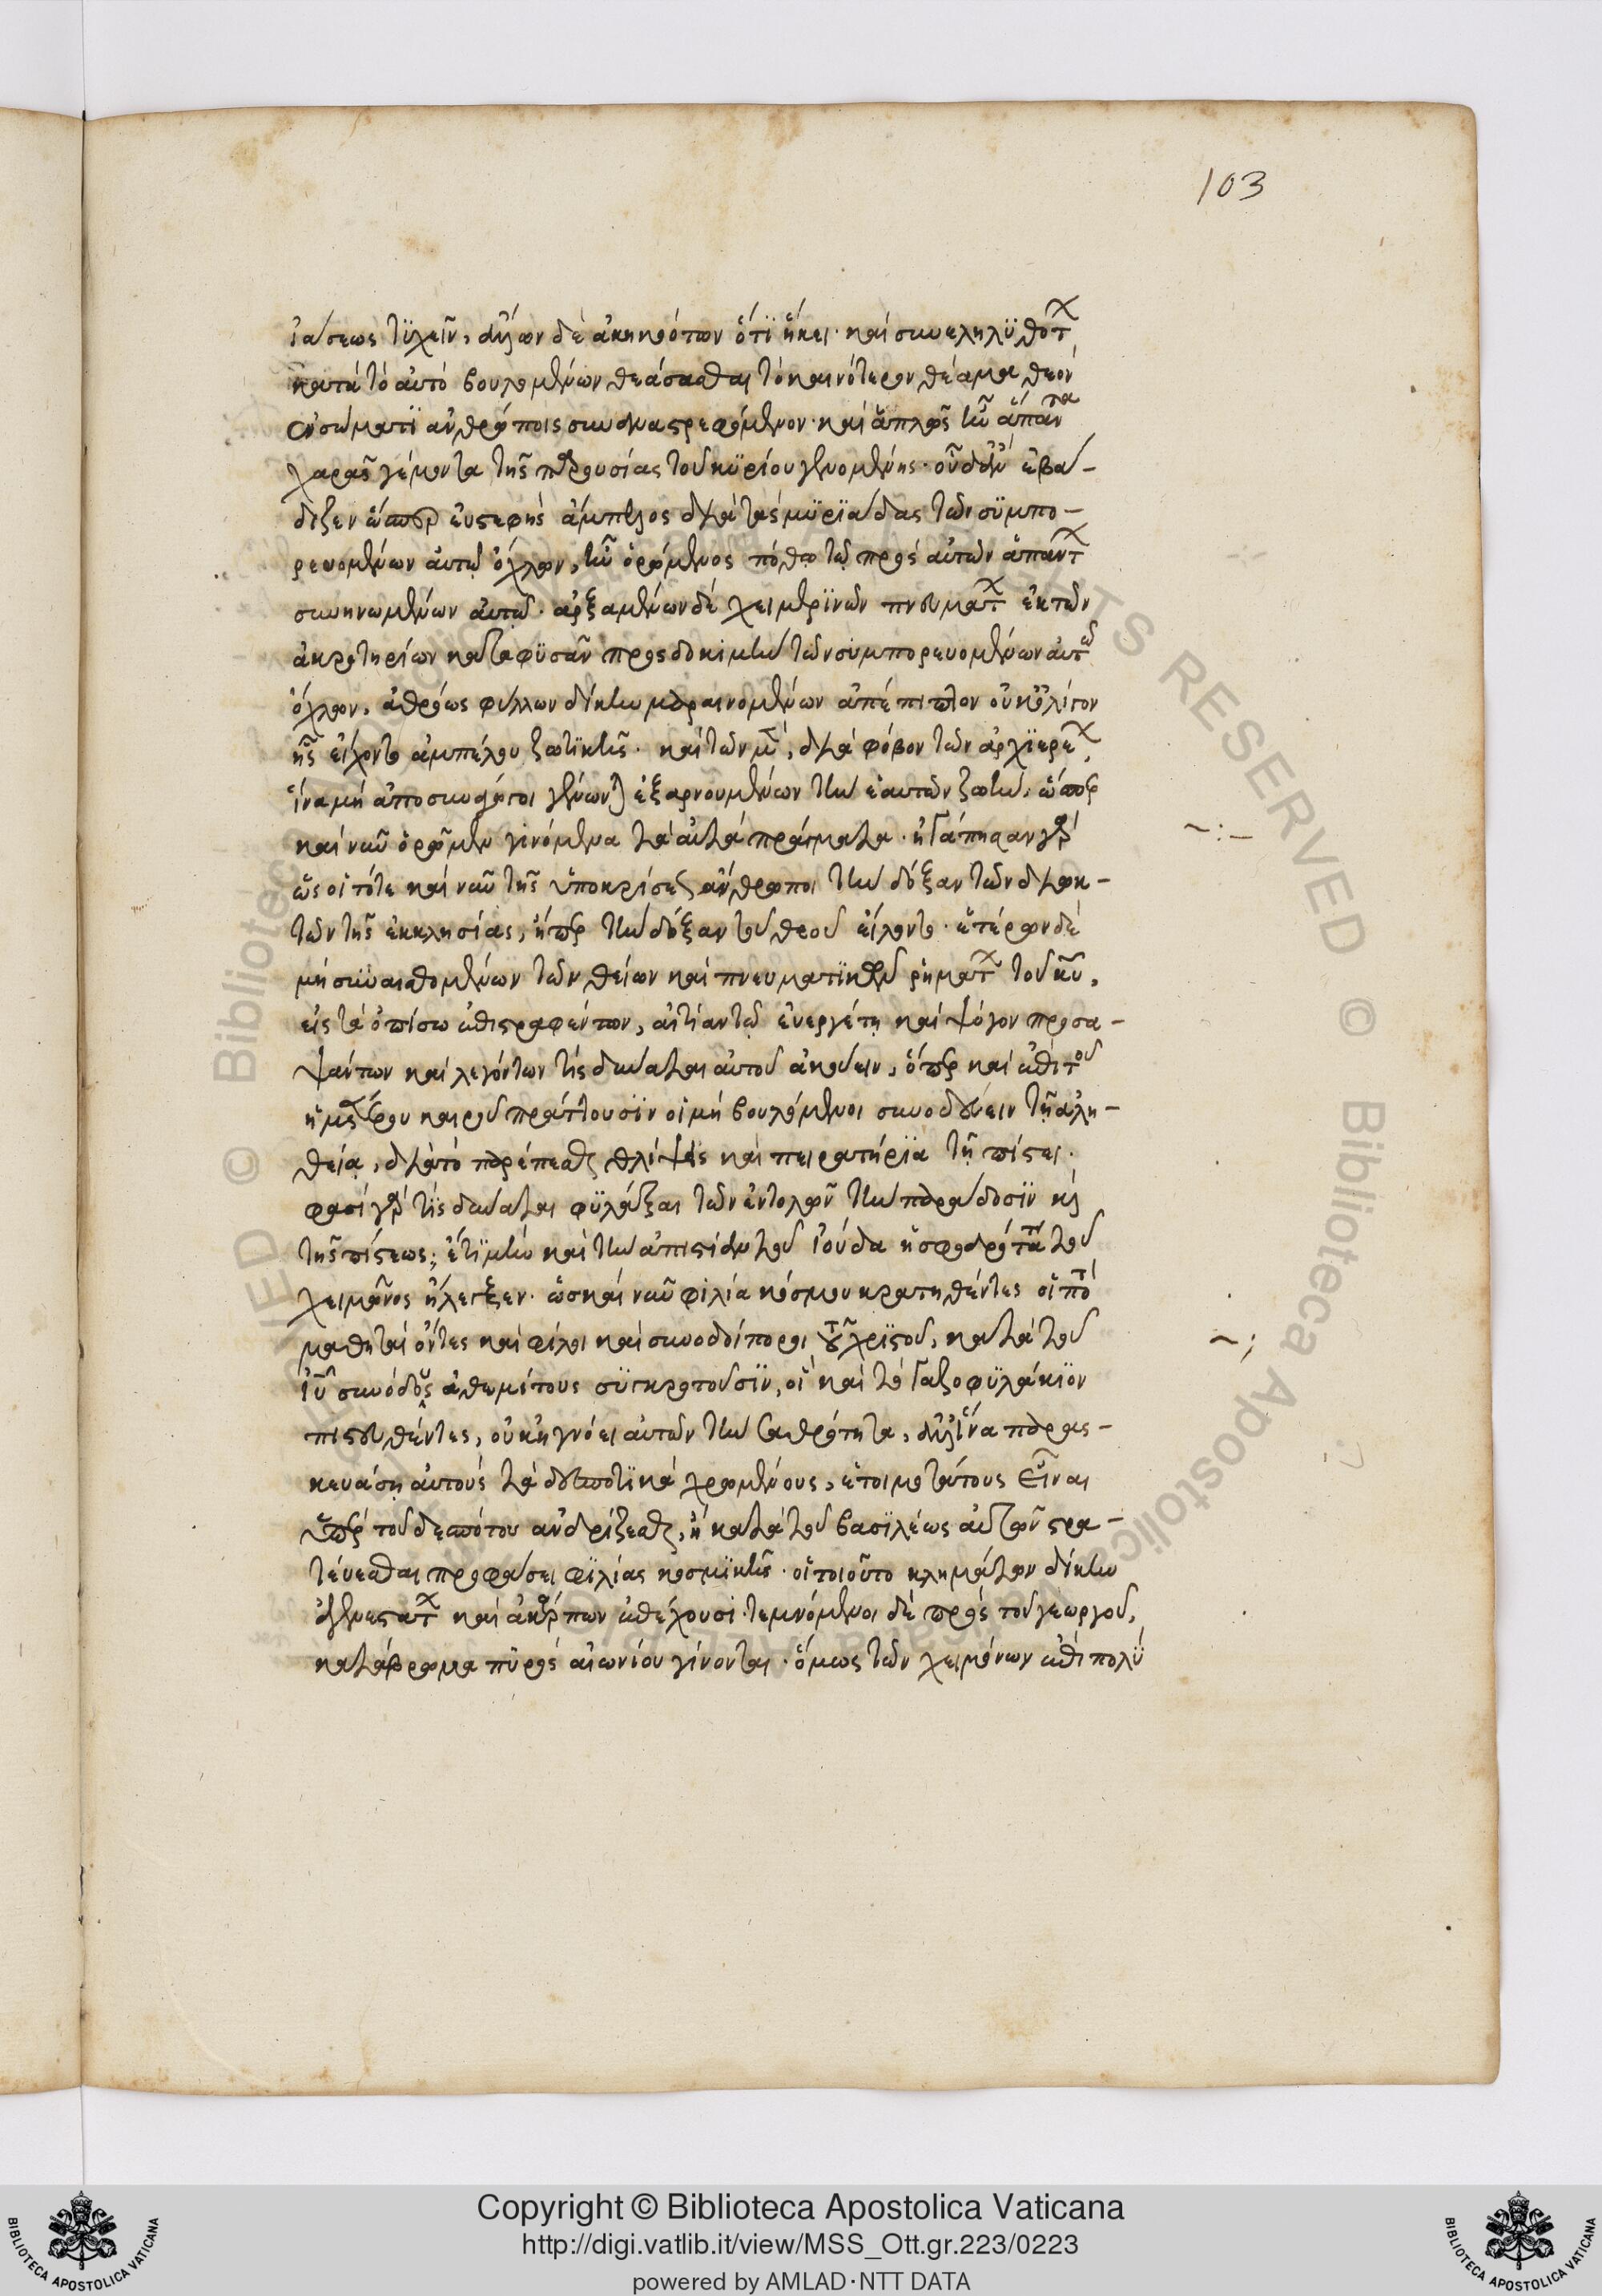 103
ἰάσεως τϋχεῖν, ἄλλων δὲ ἀκηκοότων ὅτϊ ἥκει· καὶ συνεληλϋθότων
κατὰ τὸ αὐτὸ βουλομένων θεάσασθαι τὸ καινότερον θέαμα θεὸν
ἐν σώματϊ ἀνθρώποις συναναστρεφόμενον· καὶ ἁπλῶς ἦν ἅπαντα
χαρᾶς γέμοντα τῆς παρουσίας τοῦ κυρίου γενομένης· οὐδὲν ἐβά-
διζεν ὥσπερ εὐστεφὴς ἄμπελος διὰ τὰς μϋρϊάδας τῶν σϋμπο-
ρευομένων αὐτῷ ὄχλων, ἦν ὁρώμενος πόθῳ τῷ πρὸς αὐτὸν ἁπάντων
συνηνωμένων αὐτῷ· ἀρξαμένων δὲ χειμερϊνῶν πνευμάτων ἐκ τῶν
ἀκρωτηρίων καταφϋσᾶν πρὸς δοκιμὴν τῶν συμπορευομένων αὐτῷ
ὄχλων, ἀθρόως φύλλων δίκην μαραινομένων ἀπέπιπτον οὐκ ὀλίγον
ἧς εἴχοντο ἀμπέλου ζωτϊκῆς· καὶ τῶν μὲν, διὰ φόβον τῶν ἀρχϊερέων,
ἵνα μὴ ἀποσυνάγωγοι γένωνται ἐξαρνουμένων τὴν ἑαυτῶν ζωήν, ὥσπερ
καὶ νῦν ὁρῶμεν γινόμενα τὰ αὐτὰ πράγματα· ἠγάπησαν γὰρ
ὡς οἱ τότε καὶ νῦν τῆς ὑποκρίσεως ἄνθρωποι τὴν δόξαν τῶν διωκ-
τῶν τῆς ἐκκλησίας, ἤπερ τὴν δόξαν τοῦ θεοῦ εἵλοντο· ἑτέρων δὲ
μὴ συναισθομένων τῶν θείων καὶ πνευματϊκῶν ῥημάτων τοῦ κυ,
εἰς τὰ ὀπίσω ἐπιστραφέντων, αἰτίαν τῷ εὐεργέτῃ καὶ ψόγον προσα-
ψάντων καὶ λεγόντων τίς δύναται αὐτοῦ ἀκούειν, ὅπερ καὶ ἐπὶ τοῦ
ἡμετέρου καιροῦ πράττουσϊν οἱ μὴ βουλόμενοι συνοδεύειν τῇ ἀλη-
θείᾳ, διὰ τὸ παρέπεσθαι θλίψεις καὶ πειρατήρϊα τῇ πίστει·
φασὶ γὰρ τίς δύναται φϋλάξαι τῶν ἐντολῶν τὴν παράδοσϊν καὶ
τῆς πίστεως; ἔτϊ μὴν καὶ τὴν ἀπιστίαν τοῦ ἰούδα ἡ σφοδρότης τοῦ
χειμῶνος ἤλεγξεν· ὡς καὶ νῦν φιλία κόσμου κρατηθέντες οἱ ποτὲ
μαθηταὶ ὄντες καὶ φίλοι καὶ συνοδοίποροι τοῦ χρϊστοῦ, κατὰ τοῦ
ιυ συνόδους ἀθεμίτους σϋγκροτοῦσϊν, οἳ καὶ τὸ γαζοφϋλάκϊον
πιστευθέντες, οὐκ ἠγνόει αὐτῶν τὴν σαθρότητα, ἀλλ' ἵνα παρασ-
κευάσῃ αὐτοὺς τὰ δεσποτϊκὰ χρωμένους, ἑτοιμοτάτους εἶναι
ὑπὲρ τοῦ δεσπότου ἀνδρίζεσθαι, ἢ κατὰ τοῦ βασϊλέως αὐτῶν στρα-
τεύεσθαι προφάσει φϊλίας κοσμϊκῆς· οἳ τοιοῦτο κλημάτων δίκην
ἀγενεστάτων καὶ ἀκάρπων ἐπέχουσι· τεμνόμενοι δὲ πρὸς τοῦ γεωργοῦ,
κατάβρωμα πϋρὸς αἰωνίου γίνονται· ὅμως τῶν χειμώνων ἐπὶ πολὺ
Copyright © Biblioteca Apostolica Vaticana
http://digi.vatlib.it/view/MSS_Ott.gr.223/0223
powered by AMLAD·NTT DATA